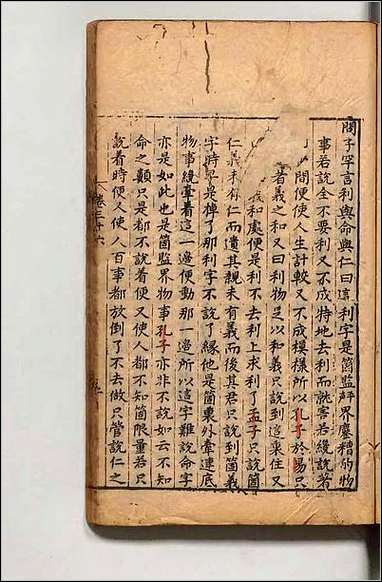 問子罕言利與命與仁曰這利字是箇監界鏖糟的物
事若說全不要利又不成特地去利而就害若纔說着
問便使人生計較又不成模樣所以孔子於易只
者義之和又曰利物足以和義只說到這乘住又
義和處便是利不去利上求利了孟子只說箇
仁義未有仁而遺其親未有義而後其君只說到箇義
字時早是掉了那利字不說了緣他是箇裏外牽連底
物事纔牽着這一邊便動那一邊所以這字難說命字
亦是如此也是箇監界物事孔子亦非不說如云不知
命之類只是都不說着便又使人都不知箇限量若只
說着時便又使人百事都放倒了不去做只管說仁之
卷三十六